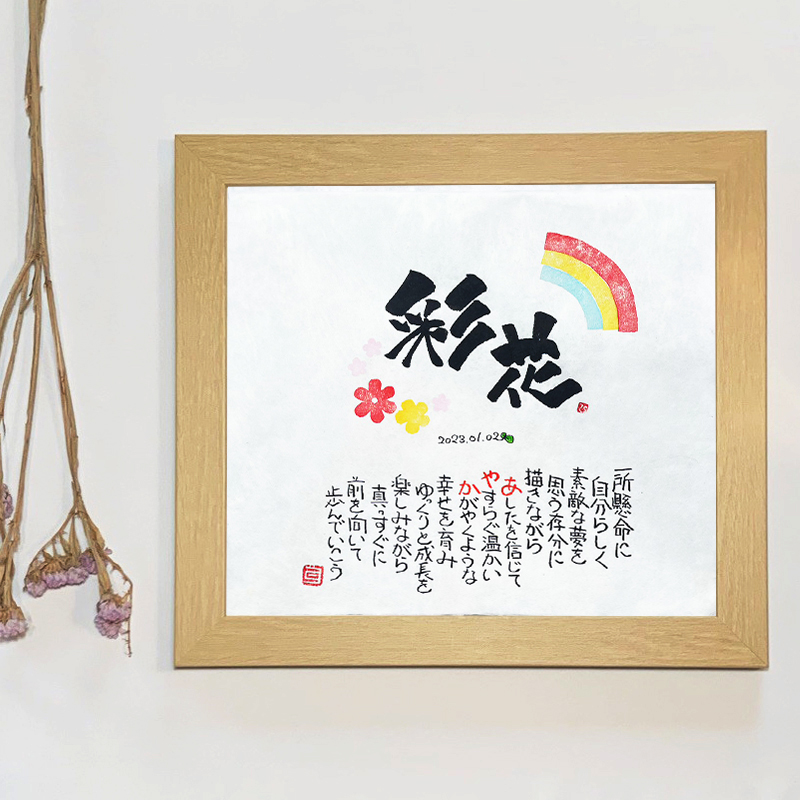 彩花
2023.01.02
一所懸命に
自分らしく
素敵な夢を
思う存分に
描きながら
あしたを信じて
やすらぐ温かい
かがやくような
幸せを育み
ゆっくりと成長を
楽しみながら
真っすぐに
前を向いて
歩んでいこう